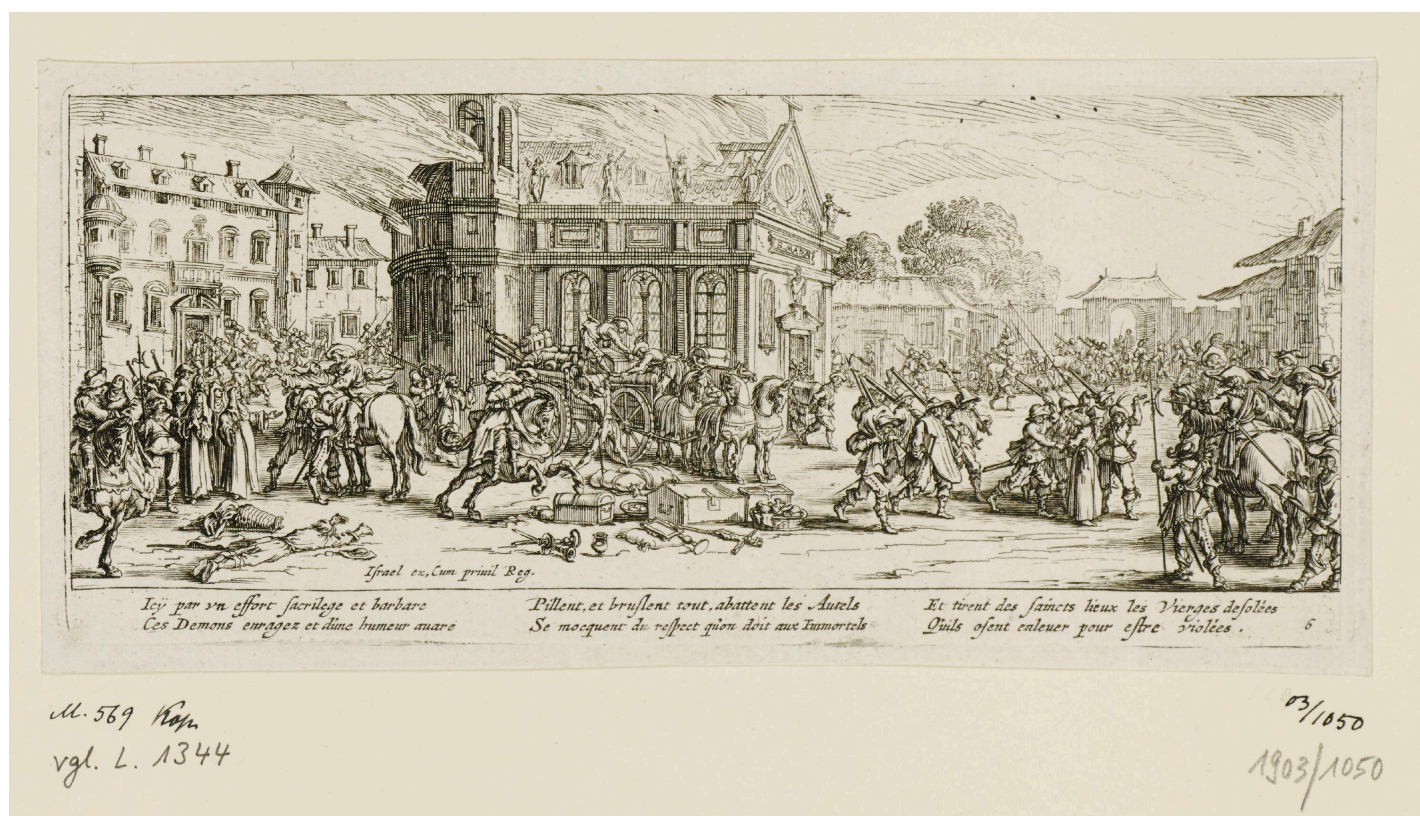 Israel ex, Cum priuil Reg.
Icÿ par vn effort sacrilege et barbare
Ces Demons enragez et d'une humeur auare
Pillent, et bruslent tout, abattent les Autels
Se mocquent du respect qu'on doit aux Immortels
Et tirent des saincts lieux les Vierges desolées
Qu'ils osent enleuer pour estre violées.
6
M. 569 Kop.
vgl. L. 1344
03/1050
1903/1050